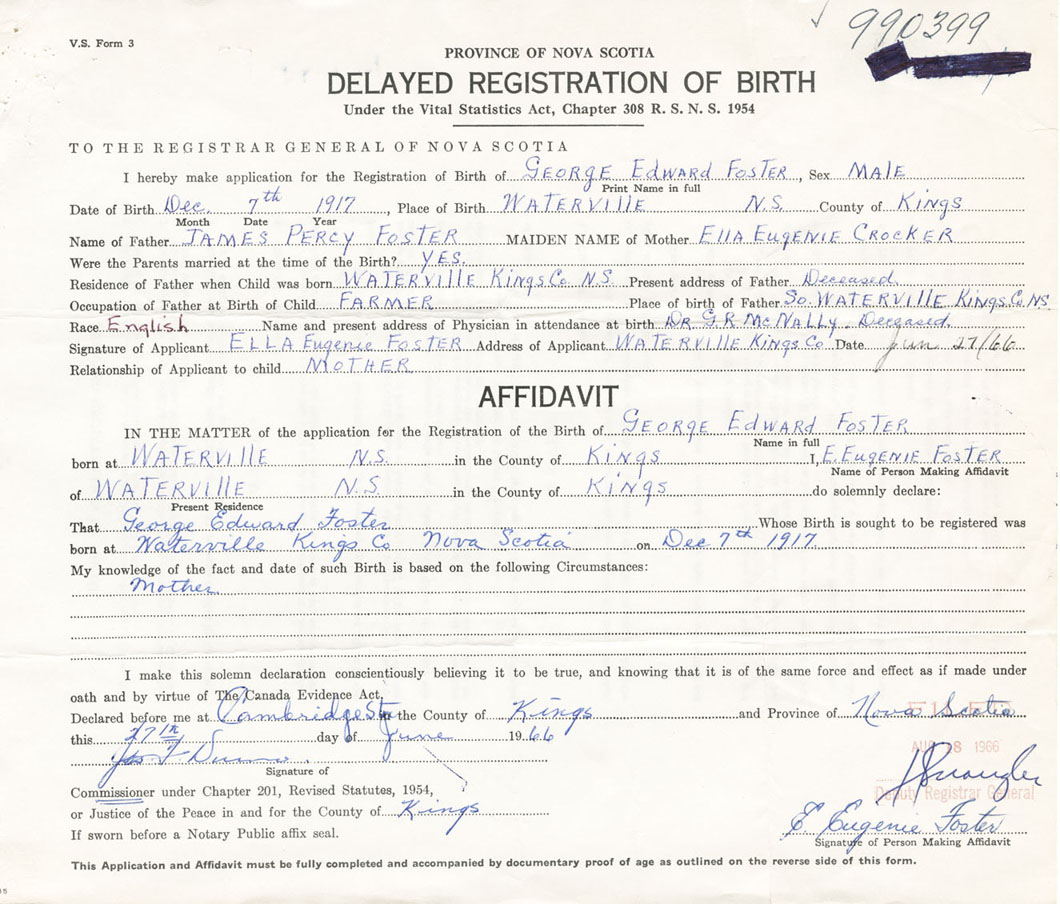 V.S. Form 3
990399
PROVINCE OF NOVA SCOTIA
DELAYED REGISTRATION OF BIRTH
Under the Vital Statistics Act, Chapter 308 R. S. N. S. 1954
TO THE REGISTRAR GENERAL OF NOVA SCOTIA
I hereby make application for the Registration of Birth of GEORGE EDWARD FOSTER, Sex MALE
Print Name in full
Date of Birth Dec. 7th 1917, Place of Birth WATERVILLE N.S. County of KINGS
Month Date Year
Name of Father JAMES PERCY FOSTER MAIDEN NAME of Mother ELLA EUGENIE CROCKER
Were the Parents married at the time of the Birth? YES.
Residence of Father when Child was born WATERVILLE KINGS Co N.S. Present address of Father Deceased.
Occupation of Father at Birth of Child FARMER Place of birth of Father So. WATERVILLE KINGS. Co. NS.
Race English Name and present address of Physician in attendance at birth DR G.R McNALLY. Deceased.
Signature of Applicant ELLA Eugenie FOSTER Address of Applicant WATERVILLE KINGS Co Date Jun 27/66
Relationship of Applicant to child MOTHER
AFFIDAVIT
IN THE MATTER of the application for the Registration of the Birth of GEORGE EDWARD FOSTER
Name in full
born at WATERVILLE N.S. in the County of KINGS I, E. EUGENIE FOSTER
Name of Person Making Affidavit
of WATERVILLE N.S. in the County of KINGS do solemnly declare:
Present Residence
That George Edward Foster Whose Birth is sought to be registered was
born at Waterville Kings Co Nova Scotia on Dec 7th 1917.
My knowledge of the fact and date of such Birth is based on the following Circumstances:
Mother.
I make this solemn declaration conscientiously believing it to be true, and knowing that it is of the same force and effect as if made under
oath and by virtue of The Canada Evidence Act,
Declared before me at Cambridge Stn in the County of Kings and Province of Nova Scotia
this 27th day of June 1966
AUG 18 1966
Signature of
Deputy Registrar General
Commissioner under Chapter 201, Revised Statutes, 1954,
or Justice of the Peace in and for the County of Kings
E. Eugenie Foster
If sworn before a Notary Public affix seal.
Signature of Person Making Affidavit
This Application and Affidavit must be fully completed and accompanied by documentary proof of age as outlined on the reverse side of this form.